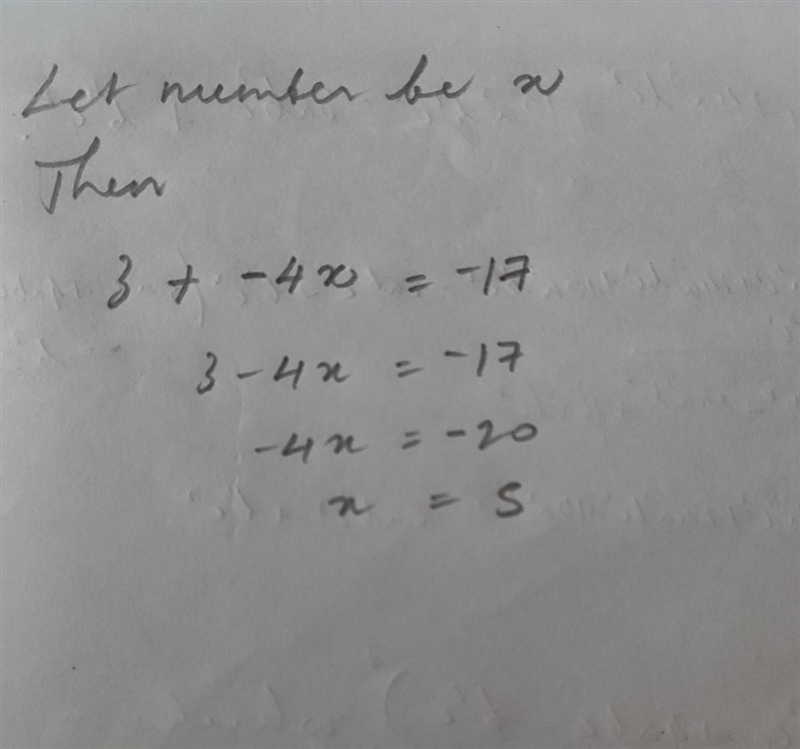 Let number be x
Then
3 + -4x = -17
3 - 4x = -17
-4x = -20
x = 5